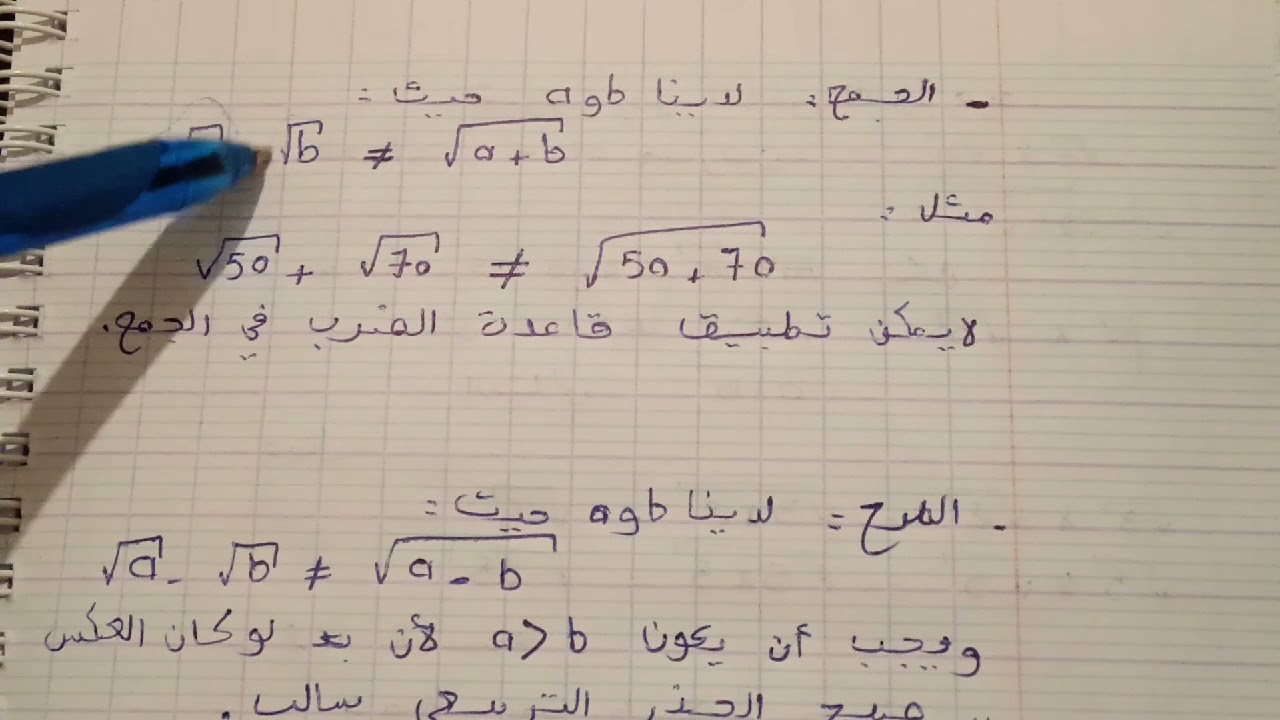 - الجمع: لدينا a و b حيث:
√b ≠ √a+b
مثل:
√50 + √70 ≠ √50+70
لا يمكن تطبيق قاعدة الضرب في الجمع.
- الطرح: لدينا a و b حيث:
√a - √b ≠ √a-b
ويجب أن يكون a>b لأن لو كان العكس
الجذر التربيعي سالب.